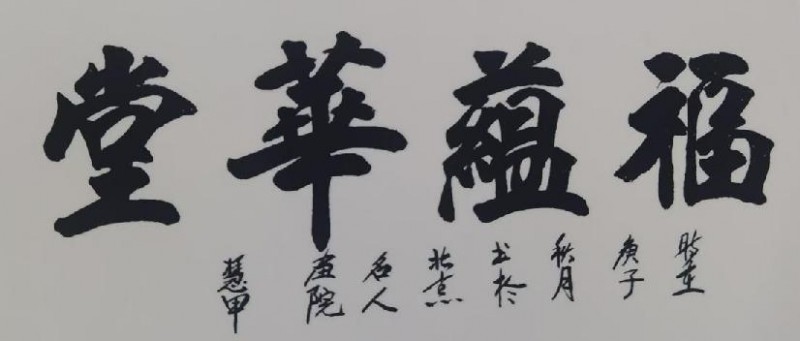 福蘊華堂
時在庚子秋月書於北京名人畫院慧甲